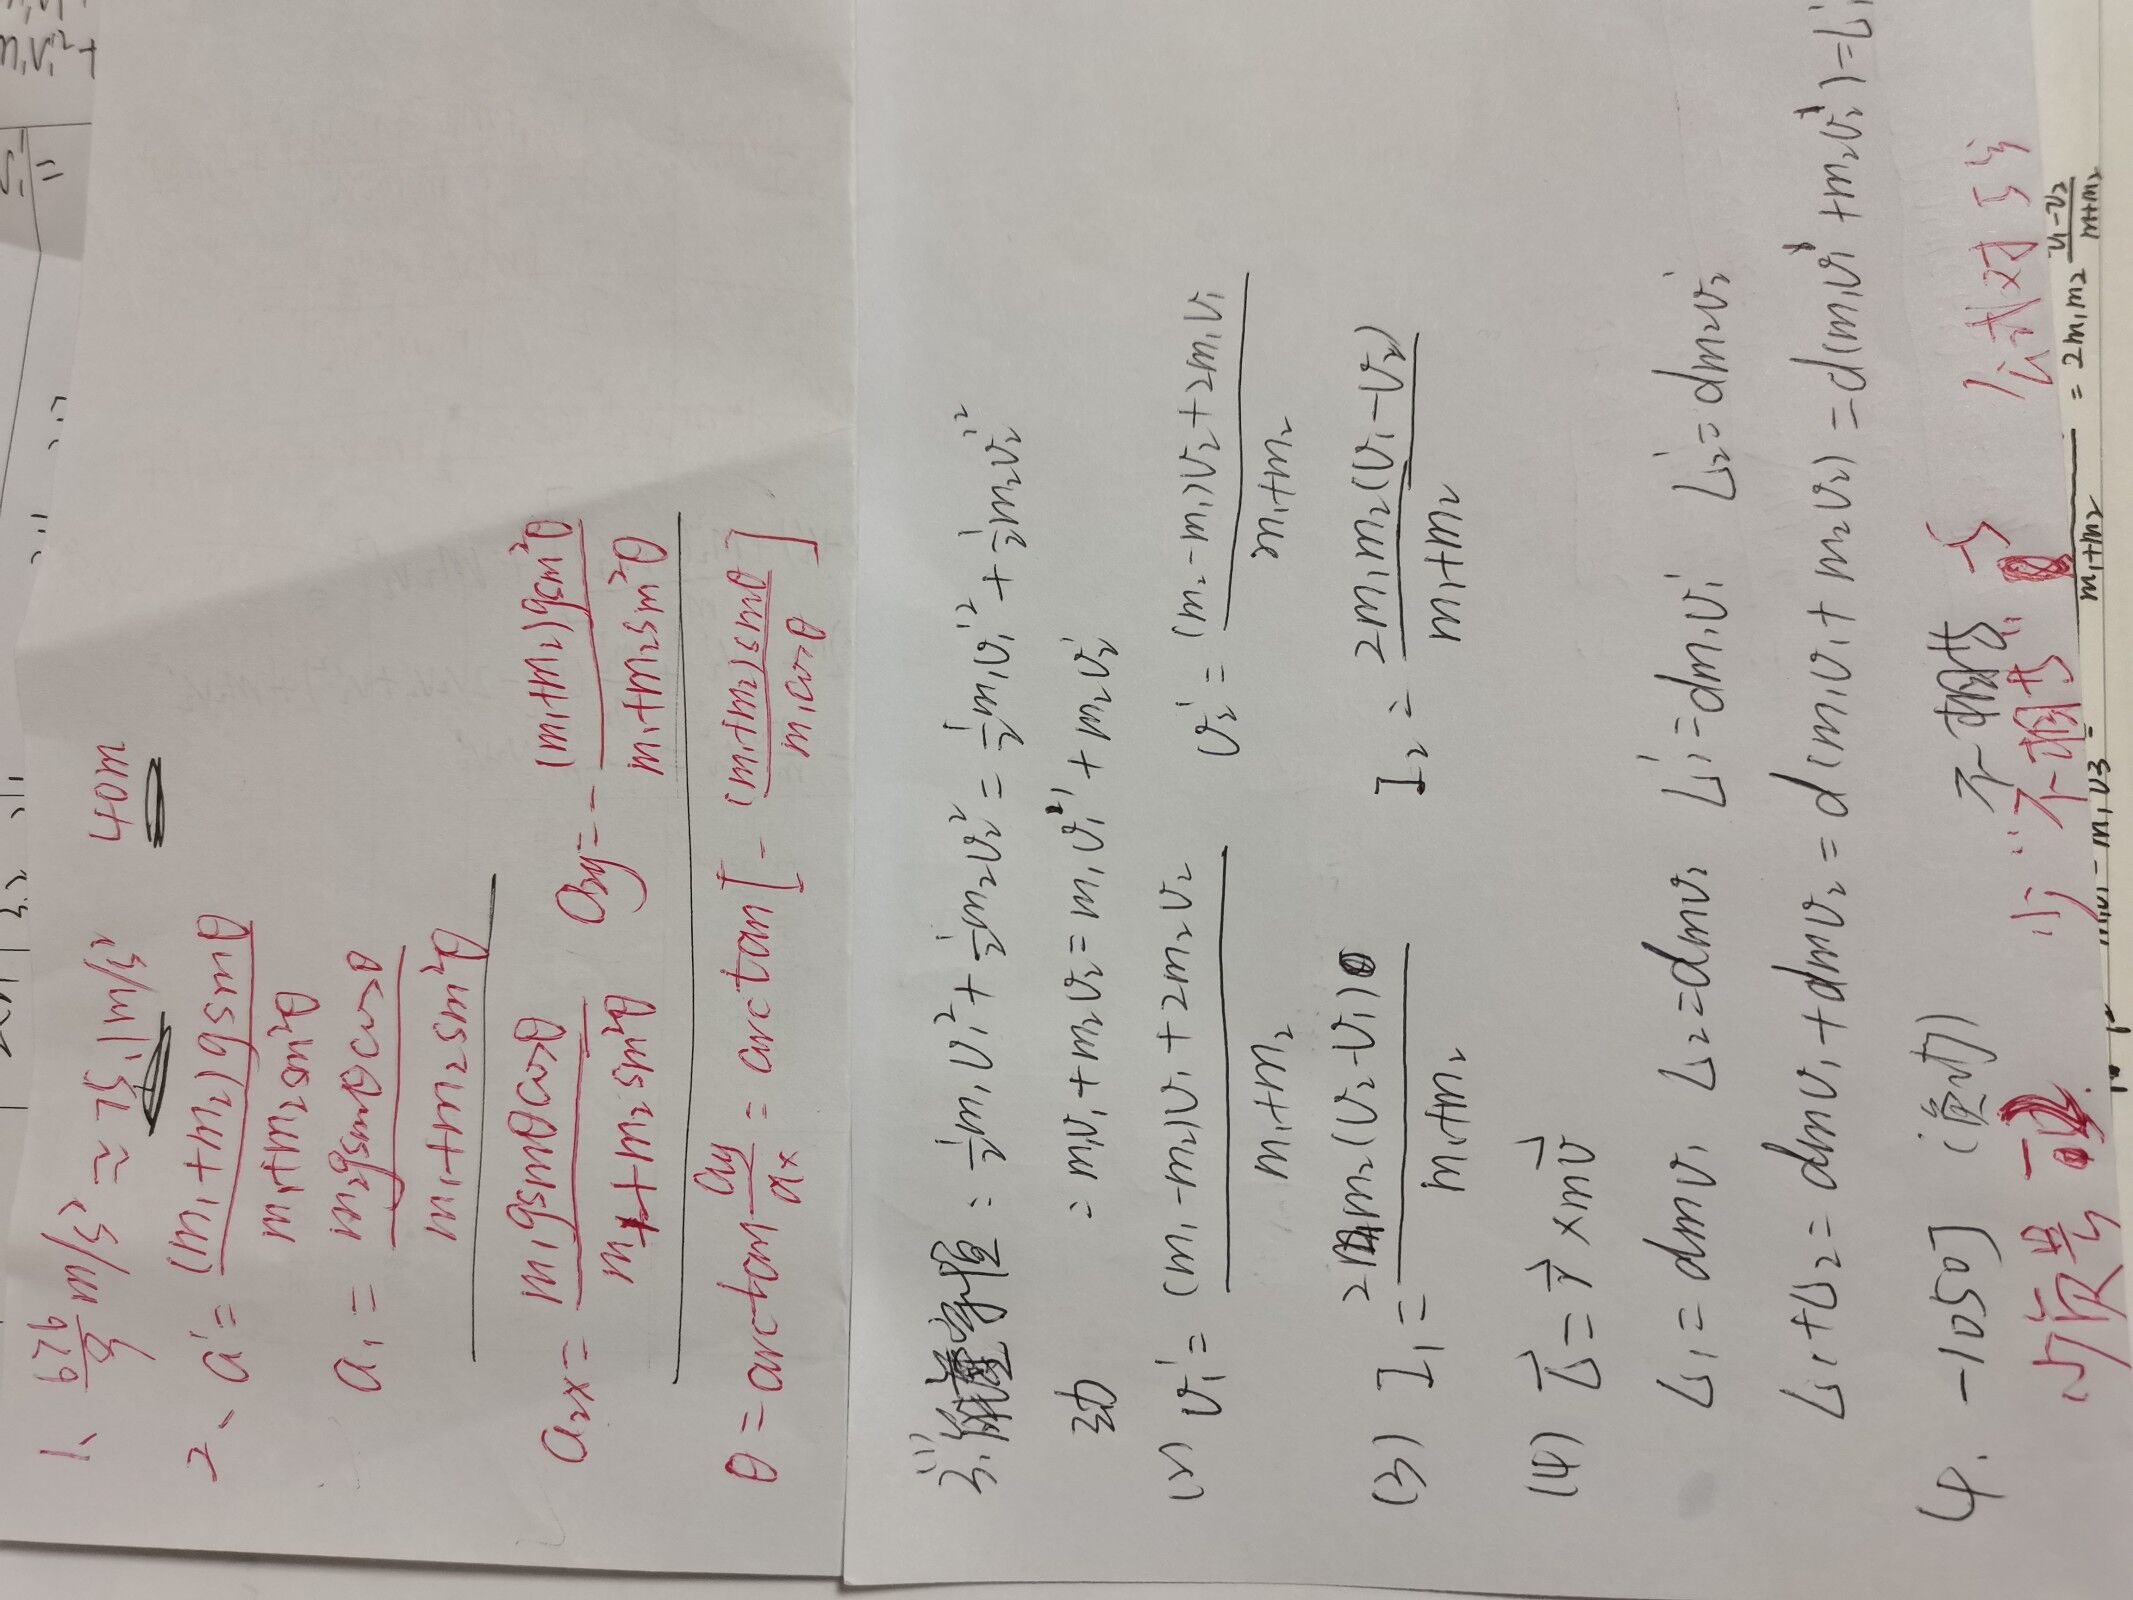 1、 676/9 m/s² ≈ 75.1 m/s² 40m
2、 a' = (m₁+m₂)gsinθ / m₁+m₂sin²θ
a₁ = m₂gsinθcosθ / m₁+m₂sin²θ
a₂x = m₁gsinθcosθ / m₁+m₂sin²θ a₂y = - (m₁+m₂)gsin²θ / m₁+m₂sin²θ
θ = arctan ay/ax = arctan[ - (m₁+m₂)sinθ / m₁cosθ ]
3、(1) 能量守恒 : ½m₁v₁² + ½m₂v₂² = ½m₁v₁'² + ½m₂v₂'²
动 = m₁v₁ + m₂v₂ = m₁v₁' + m₂v₂'
(2) v₁' = (m₁-m₂)v₁+2m₂v₂ / m₁+m₂ v₂' = (m₂-m₁)v₂+2m₁v₁ / m₁+m₂
(3) I₁ = 2m₁m₂(v₂-v₁) / m₁+m₂ I₂ = 2m₁m₂(v₁-v₂) / m₁+m₂
(4) L⃗ = r⃗ × mv⃗
L₁ = dmv₁ L₂ = dmv₂ L₁' = dm₁v₁' L₂' = dm₂v₂'
L₁+L₂ = dmv₁+dmv₂ = d(m₁v₁+m₂v₂) = d(m₁v₁'+m₂v₂') = L₁'
4. -1050J (负功) 不
少质量 少"不相 公式对 5分
m₁+m₂ = 2m₁m₂ v₁-v₂ / m₁+m₂